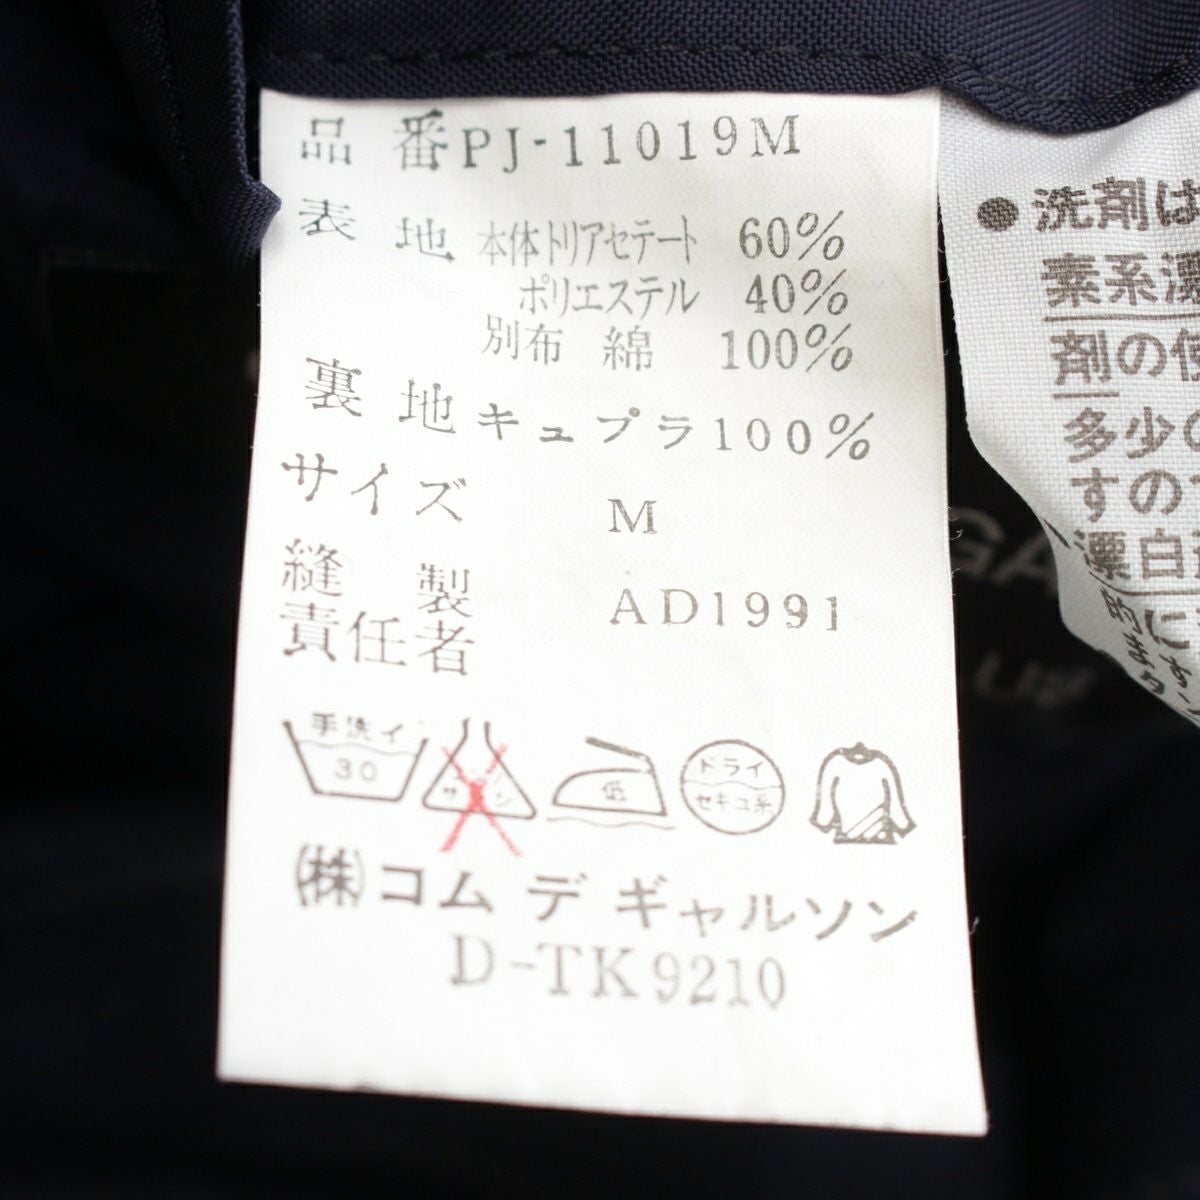 品番PJ-11019M
表地 本体トリアセテート 60%
ポリエステル 40%
別布 綿 100%
裏地キュプラ100%
サイズ M
縫製
責任者 AD1991
手洗イ
30
低
ドライ
セキユ系
(株)コム デ ギャルソン
D-TK9210
●洗剤は
素系漂
剤の使
多少の
すので
漂白
に
GA